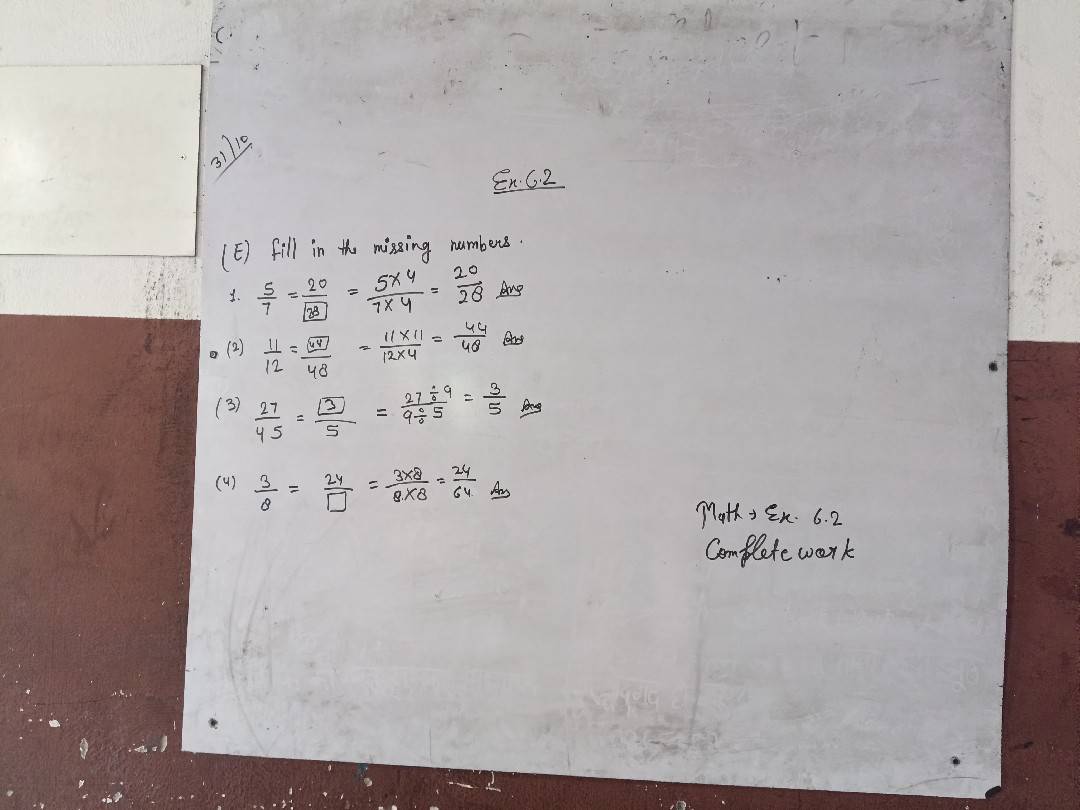 31/10
Ex. 6.2
(E) fill in the missing numbers.
1. 5/7 = 20/28 = 5×4/7×4 = 20/28 Ans
(2) 11/12 = 44/48 = 11×11/12×4 = 44/48 Ans
(3) 27/45 = 3/5 = 27÷9/9÷5 = 3/5 Ans
(4) 3/8 = 24/□ = 3×8/8×8 = 24/64 Ans
Math → Ex. 6.2
Complete work